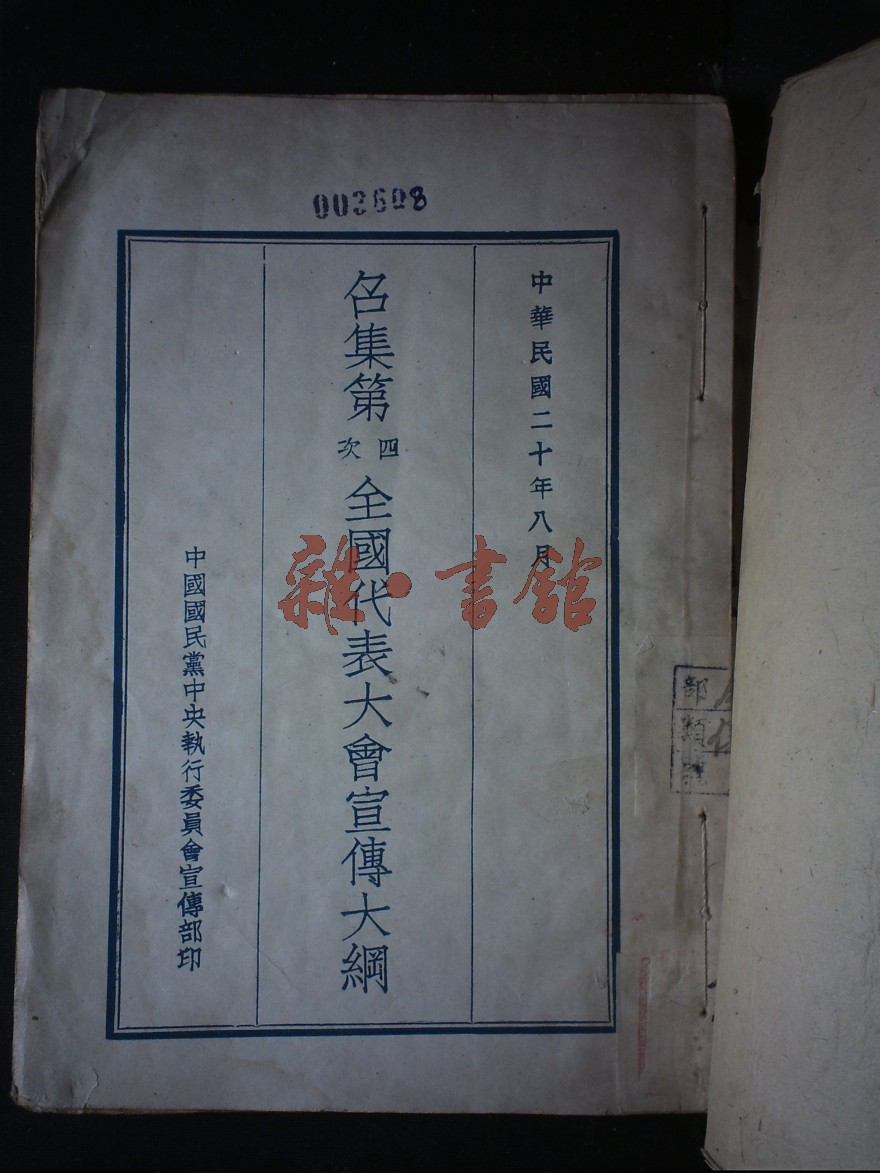 003608
中華民國二十年八月
召集第四次全國代表大會宣傳大綱
中國國民黨中央執行委員會宣傳部印
雜·書館
部
類